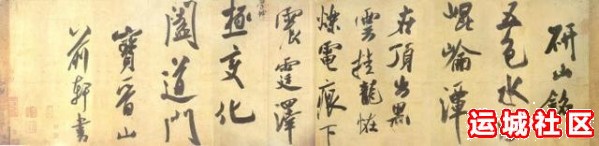 研山銘
五色水
崐崘潭
在頂出黑
雲挂龍怪
爍電痕下
震霆澤
極變化
闔道門
寶晉山
前軒書
运城社区